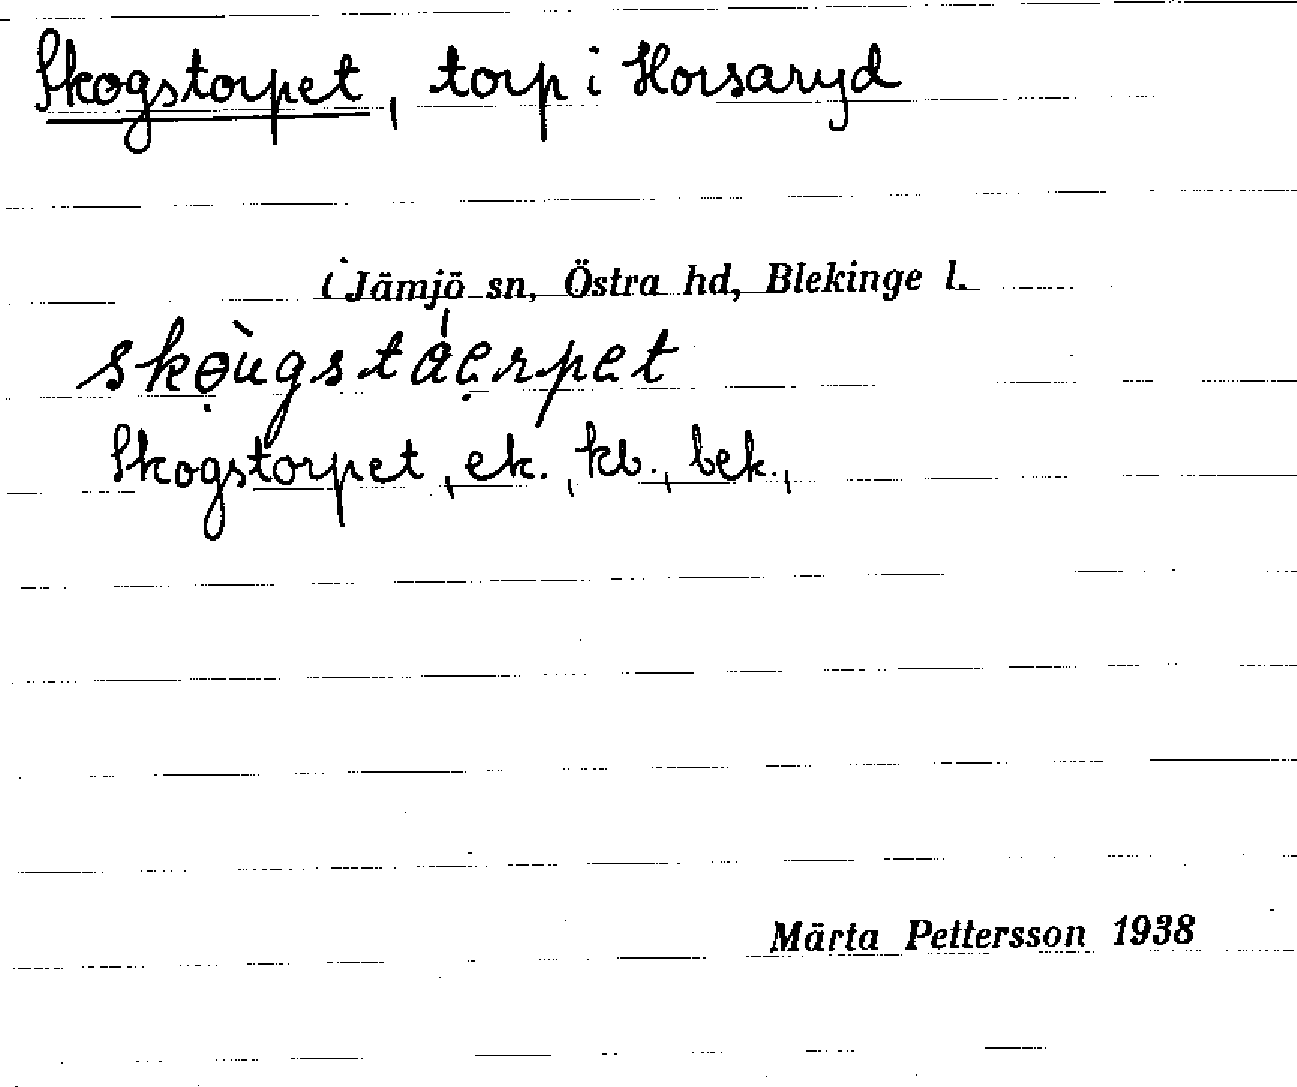 Skogstorpet, torp i Horsaryd
i Jämjö sn, Östra hd, Blekinge l.
skə̣ùgstáẹrpet
Skogstorpet, ek., kb., bek.,
Märta Pettersson 1938